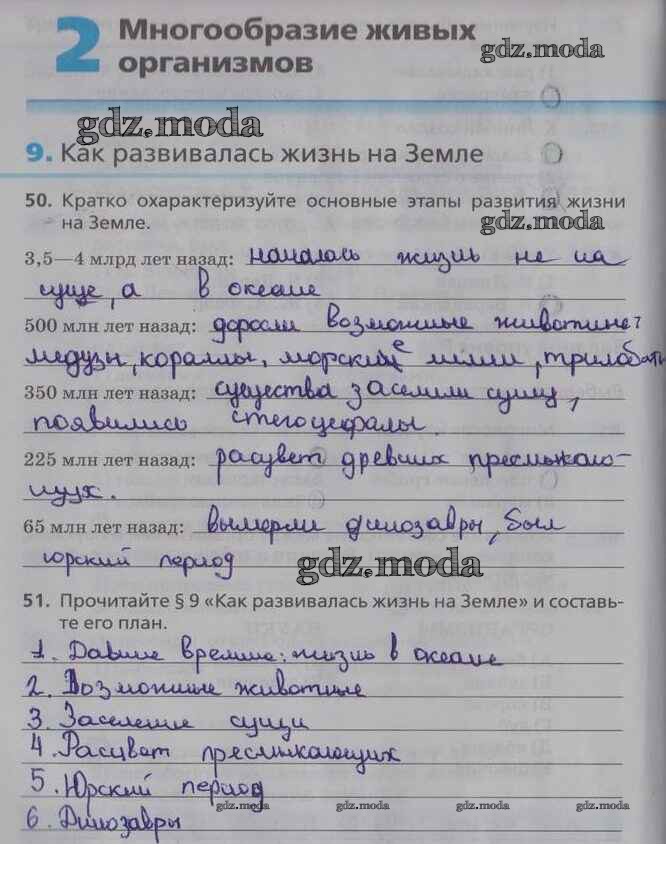 2 Многообразие живых
организмов
gdz.moda
gdz.moda
9. Как развивалась жизнь на Земле
50. Кратко охарактеризуйте основные этапы развития жизни
на Земле.
gdz.moda
3,5—4 млрд лет назад: началась жизнь не на
суще, а в океане
500 млн лет назад: доросли возможные животные:
медузы, кораллы, морские лилии, трилобиты
350 млн лет назад: существа заселили сушу,
появились стегоцефалы.
225 млн лет назад: расцвет древних пресмыкаю-
щихх.
65 млн лет назад: вымерли динозавры, был
юрский период
gdz.moda
51. Прочитайте § 9 «Как развивалась жизнь на Земле» и составь-
те его план.
1. Давние времена: жизнь в океане
2. Возможные животные
3. Заселение суши
4. Расцвет пресмыкающихх
5. Юрский период
gdz.moda gdz.moda gdz.moda gdz.moda
6. Динозавры